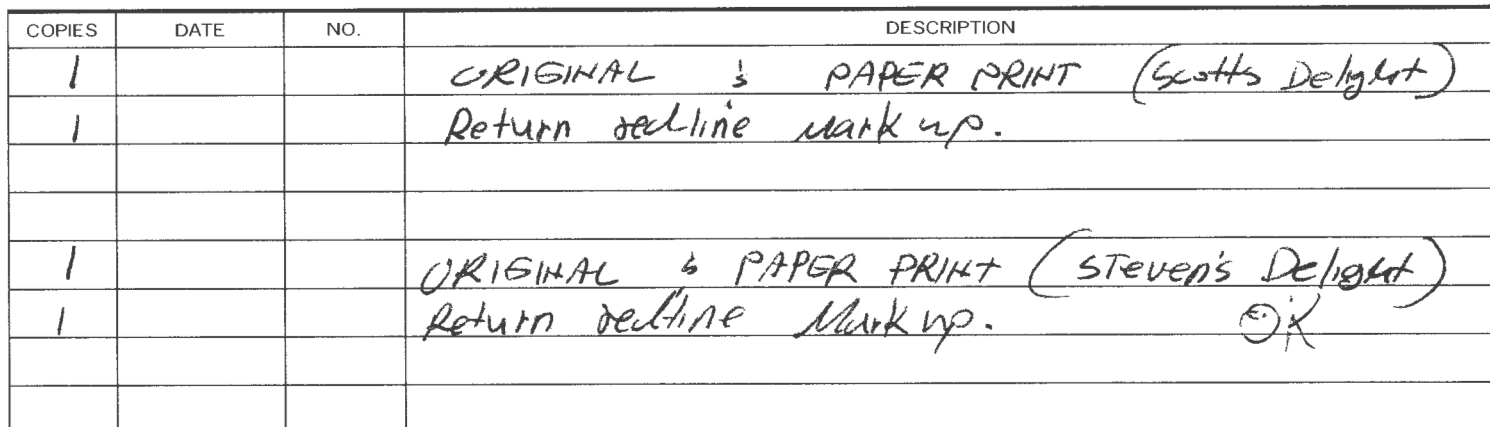 COPIES DATE NO. DESCRIPTION
1 ORIGINAL & PAPER PRINT (Scotts Delight)
1 Return redline Mark up.
1 ORIGINAL & PAPER PRINT (Steven's Delight)
1 Return redline Mark up. OK